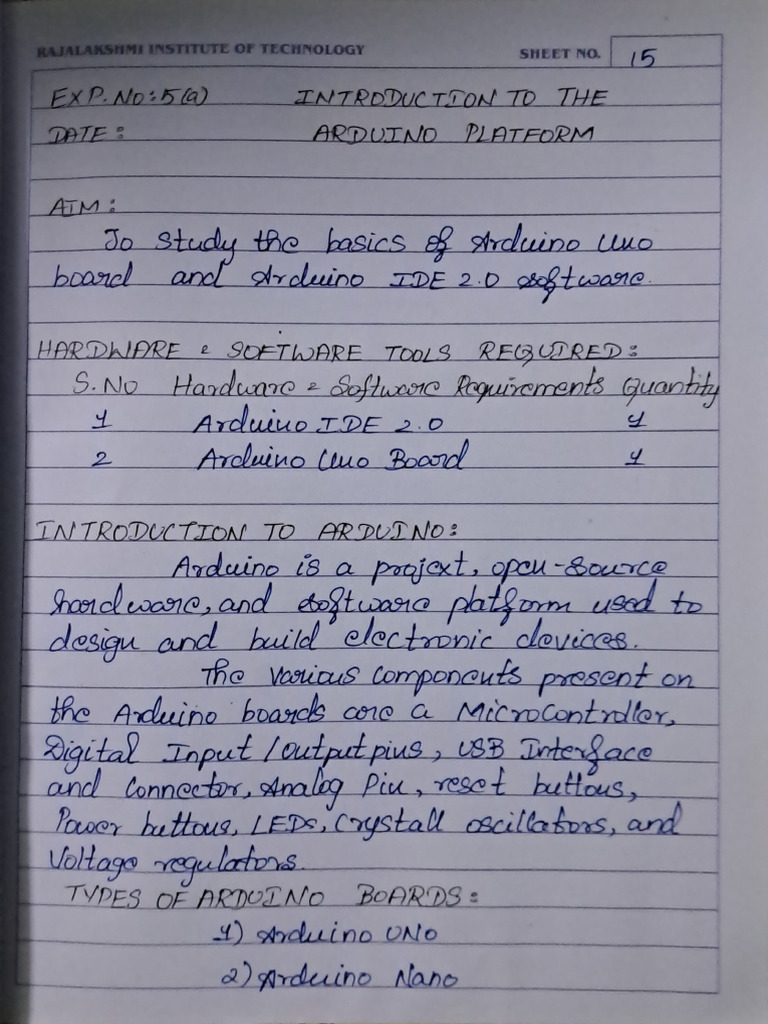 RAJALAKSHMI INSTITUTE OF TECHNOLOGY SHEET NO. 15
EXP.NO:5(a) INTRODUCTION TO THE
DATE: ARDUINO PLATFORM
AIM:
To study the basics of Arduino Uno
board and Arduino IDE 2.0 software.
HARDWARE & SOFTWARE TOOLS REQUIRED:
S.NO Hardware & Software Requirements Quantity
1 Arduino IDE 2.0 1
2 Arduino Uno Board 1
INTRODUCTION TO ARDUINO:
Arduino is a project, open-source
hardware, and software platform used to
design and build electronic devices.
The various components present on
the Arduino boards are a Microcontroller,
Digital Input/output pins, USB Interface
and Connector, Analog Pin, reset buttons,
Power buttons, LEDs, Crystall oscillators, and
Voltage regulators.
TYPES OF ARDUINO BOARDS:
1) Arduino UNO
2) Arduino Nano